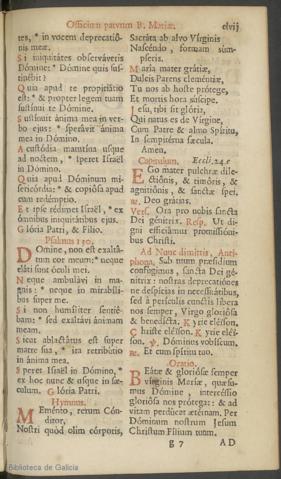 Officium parvum B. Mariæ. clvij
tes, * in vocem deprecatió-
nis meæ.
Si iniquitátes observáveris
Dómine: * Dómine quis sus-
tinébit?
Quia apud te propitiátio
est: * & propter legem tuam
sustínui te Dómine.
Sustínuit ánima mea in ver-
bo ejus: * sperávit ánima
mea in Dómino.
A custódia matutína usque
ad noctem, * speret Israël
in Dómino.
Quia apud Dóminum mi-
sericórdia: * & copiósa apud
eum redémptio.
Et ipse rédimet Israël, * ex
ómnibus iniquitátibus ejus.
Glória Patri, & Filio.
Psalmus 130.
Domine, non est exaltá-
tum cor meum: * neque
eláti sunt óculi mei.
Neque ambulávi in ma-
gnis: * neque in mirabíli-
bus super me.
Si non humíliter sentié-
bam: * sed exaltávi ánimam
meam.
Sicut ablactátus est super
matre sua, * ita retribútio
in ánima mea.
Speret Israël in Dómino, *
ex hoc nunc & usque in sæ-
culum. Glória Patri.
Hymnus.
Meménto, rerum Cón-
ditor,
Nostri quòd olim córporis,
Sacráta ab alvo Vírginis
Nascéndo, formam súm-
pseris.
María mater grátiæ,
Dulcis Parens cleméntiæ,
Tu nos ab hoste prótege,
Et mortis hora súscipe.
Jesu, tibi sit glória,
Qui natus es de Vírgine,
Cum Patre & almo Spíritu,
In sempitérna sæcula.
Amen.
Capitulum. Eccli. 24. c
Ego mater pulchræ dile-
ctiónis, & timóris, &
agnitiónis, & sanctæ spei.
℟. Deo grátias.
Vers. Ora pro nobis sancta
Dei génitrix. Resp. Ut di-
gni efficiámur promissióni-
bus Christi.
Ad Nunc dimittis, Anti-
phona. Sub tuum præsídium
confúgimus, sancta Dei gé-
nitrix: nostras deprecatiónes
ne despícias in necessitátibus,
sed à perículis cunctis líbera
nos semper, Virgo gloriósa
& benedícta. Kyrie eléison.
Christe eléison. Kyrie eléi-
son. ℣. Dóminus vobíscum.
℟. Et cum spíritu tuo.
Oratio.
Beátæ & gloriósæ semper
vírginis Maríæ, quǽsu-
mus Dómine, intercéssio
gloriósa nos prótegat: & ad
vitam perdúcat ætérnam. Per
Dóminum nostrum Jesum
Christum Fílium tuum.
g 7 AD
Biblioteca de Galicia